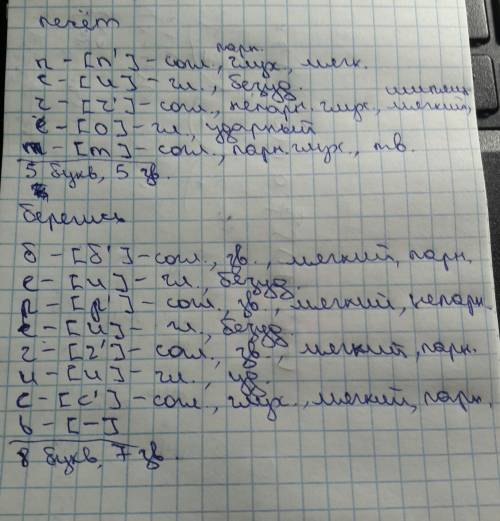 печёт
парн.
п - [п'] - согл., глух., мягк.
е - [и] - гл., безуд.
шипящ.
ч - [ч'] - согл., непарн. глух., мягкий,
ё - [о] - гл., ударный
т - [т] - согл., парн. глух., тв.
5 букв, 5 зв.
берегись
б - [б'] - согл., зв., мягкий, парн.
е - [и] - гл., безуд.
р - [р'] - согл., зв., мягкий, непарн.
е - [и] - гл., безуд.
г - [г'] - согл., зв., мягкий, парн.
и - [и] - гл., уд.
с - [с'] - согл., глух., мягкий, парн.
ь - [-]
8 букв, 7 зв.